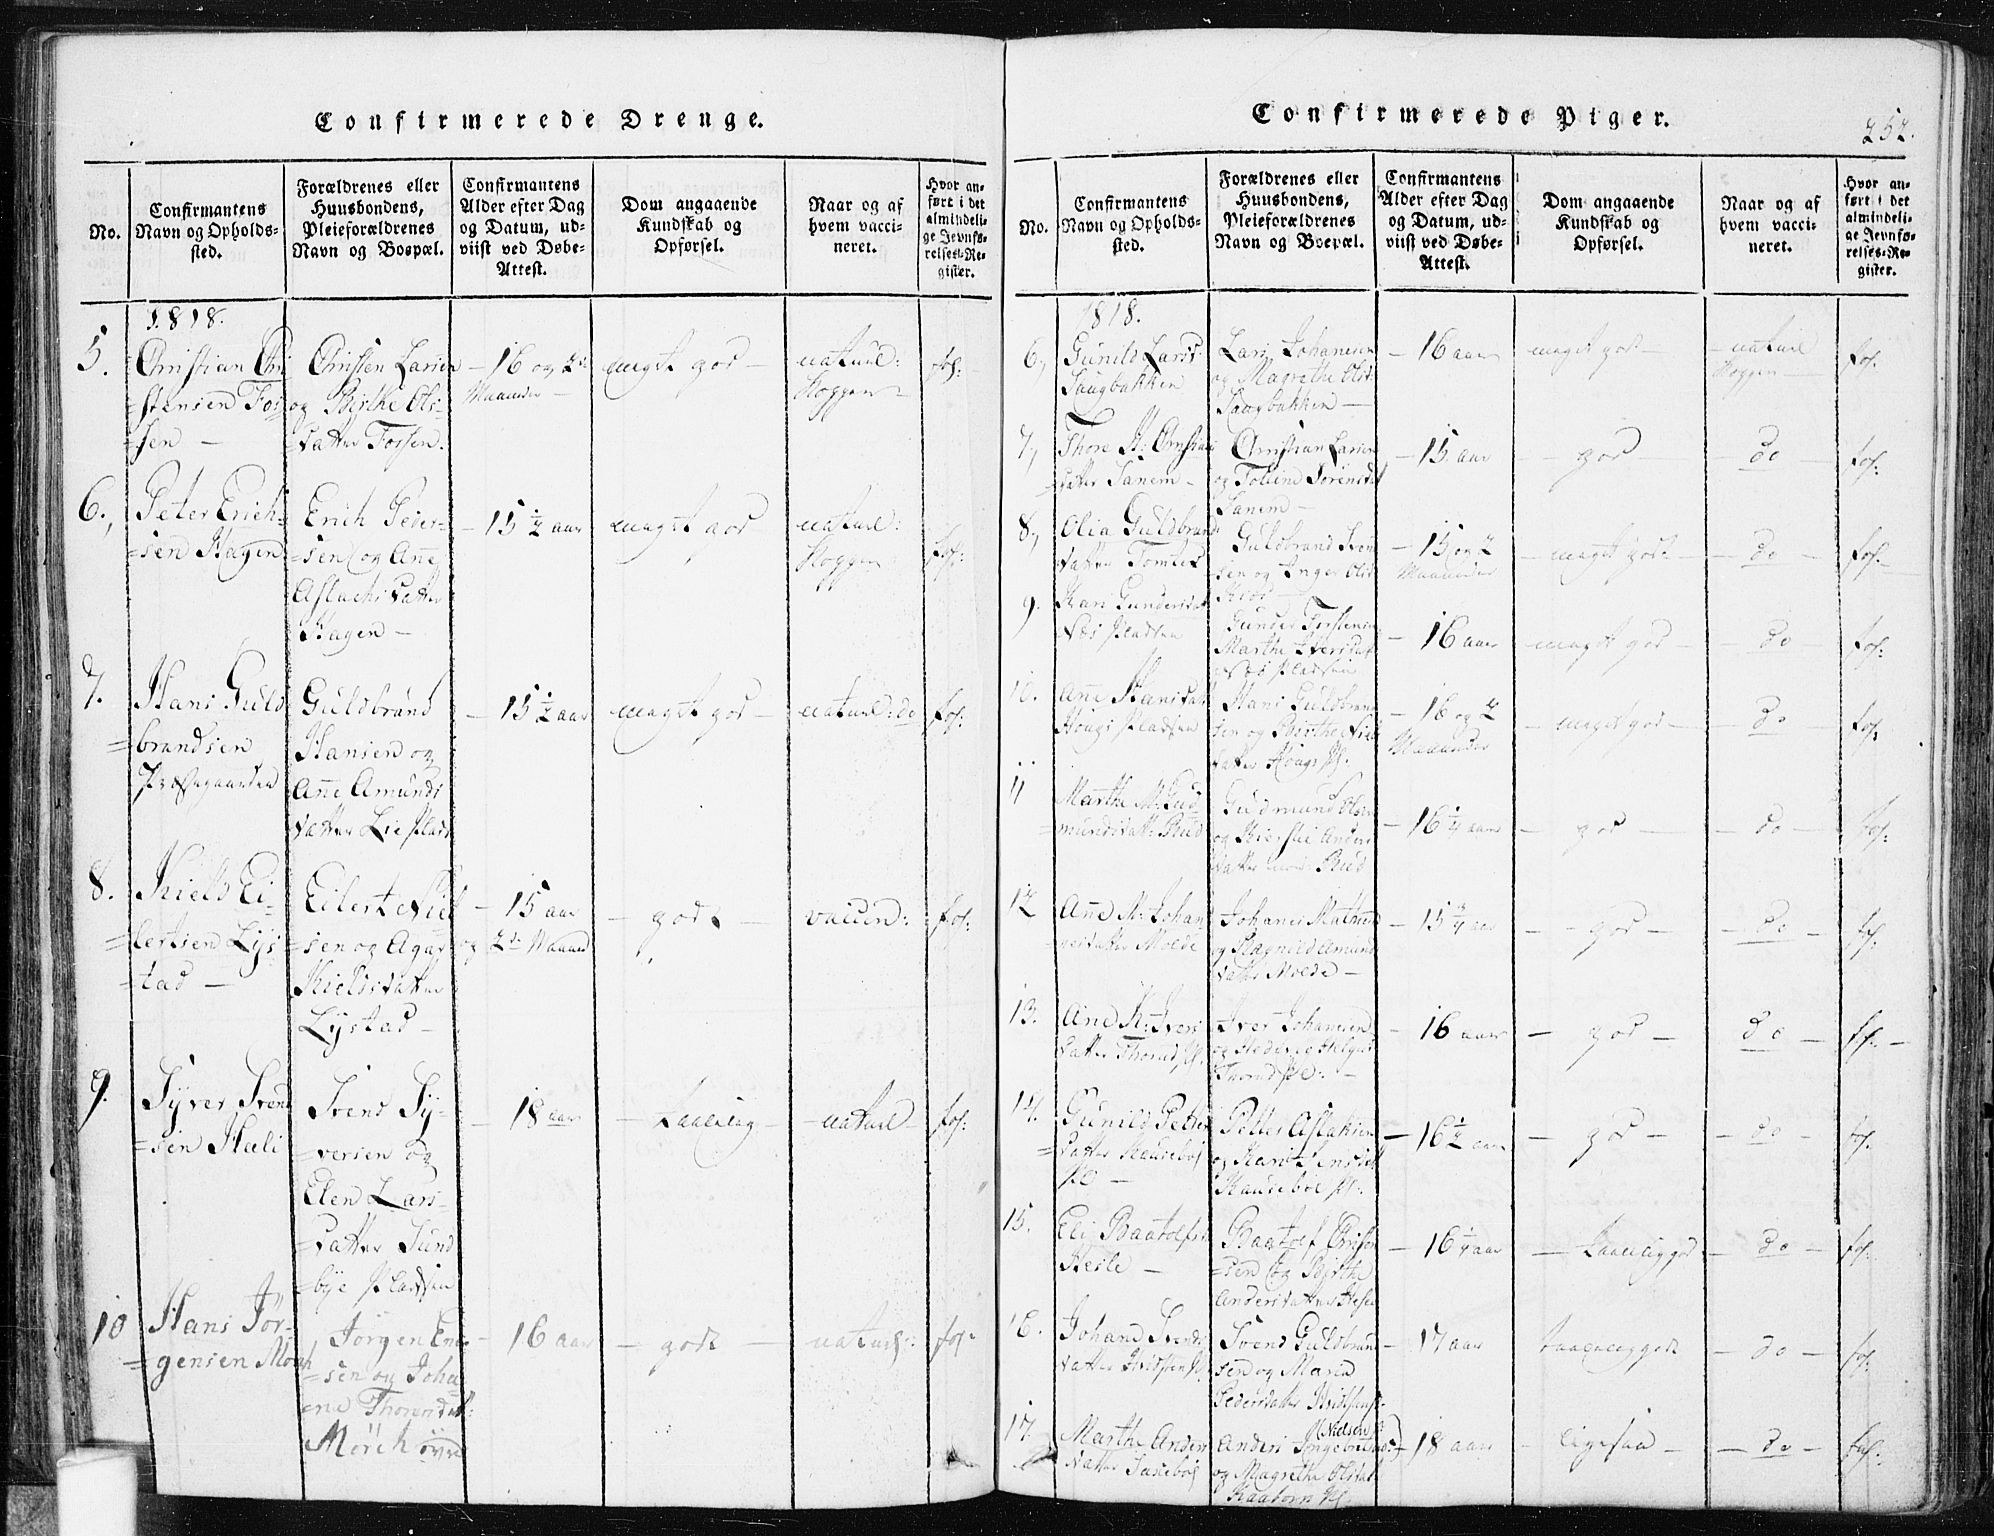 Confirmerede Drenge.
No.
Confirmantens
Navn og Opholds-
sted.
Forældrenes eller
Huusbondens,
Pleieforældrenes
Navn og Bospæl.
Confirmantens
Alder efter Dag
og Datum, ud-
viist ved Døbe-
Attest.
Dom angaaende
Kundskab og
Opførsel.
Naar og af
hvem vacci-
neret.
Hvor an-
ført i det
almindeli-
ge Jevnfø-
relses-Re-
gister.
1818.
5.
Christian Chri
=stensen Fos-
sen —
Christen Larsen
og Birthe Ols-
datter Fossen.
16 og 2de
Maaneder —
meget god —
naturl:
Kopper —
fol:
6.
Peter Erich-
=sen Hagen
Erich Peder-
=sen og Anne
Aslachsdatter
Hagen —
— 15 1/2 aar
meget god
naturl:
Kopper
fol:
7.
Hans Guld
=brandsen
Præstegaarden
Guldbrand
Hansen og
Anne Amunds
datter Lie Plads
— 15 1/2 aar
meget god —
naturl: do
fol:
8.
Kield Ei-
=lertsen Lys
=tad —
Eilert Niel
=sen og Agar
Kieldsdatter
Lystad —
— 15 aar
og 2de Maaned
— god —
vaccin:
fol:
9.
Syver Svend
=sen Hæli
Svend Sy-
=versen og
Elen Lars-
=datter Sund
=bye Pladsen
— 18 aar
— Taalelig —
— naturl —
fol:
10
Hans Jør-
=gensen Mørch
Jørgen Ene-
=sen og Joha-
ene Thoresdat:
Mørch øvre
— 16 aar
— godt —
naturl:
fol:
Confirmerede Piger.
252.
No.
Confirmantens
Navn og Opholds-
sted.
Forældrenes eller
Huusbondens,
Pleieforældrenes
Navn og Boepæl.
Confirmantens
Alder efter Dag
og Datum, ud-
viist ved Døbe-
Attest.
Dom angaaende
Kundskab og
Opførsel.
Naar og af
hvem vacci-
neret.
Hvor an-
ført i det
almindeli-
ge Jevnfø-
relses-Re-
gister.
1818.
6.
Gunild Larsd:
Saugbakken
Lars Johannesen
og Magrethe Olsd:
Saugbakken —
— 16 aar
meget god —
— naturl
Kopper —
fol:
7.
Thore M: Christians
=datter Sanem —
Christian Larsen
og Tolline Sørensdat
Sanem —
— 15 aar
— god —
— do —
fol:
8.
Olia Guldbrands
datter Tomter
Guldbrand Svend
sen og Inger Olsd
— 15 og 2
Maaneder
— meget godt —
— do —
fol:
9.
Kari Gundersdat
Næs Pladsen
Gunder Torstensen
Marthe Iversdat
Næs Pladsen
— 16 aar
meget god —
— do
fol:
10.
Anne Hansdat
Hougs Pladsen
Hans Guldbrand
sen og Birthe Niels
datter Hougs Pl.
— 16 og 2
Maaneder
— meget god —
— do —
fol:
11
Marthe M: Gud
=mundsdatt: Rud
Gudmund Olsen
og Kierstie Anders
datter Rud
— 16 1/4 aar
— god —
— do —
fol:
12
Anne M: Johan
=nesdatter Moede
Johannes Mathies
og Ragnild Amund
datter Moede —
— 15 3/4 aar
— god —
— do —
fol:
13.
Anne K: Ivers
datter Thorud Pl.
Iver Johannesen
Thorud Pl: —
— 16 aar
— god —
do
fol: —
14.
Gunild Petters
=datter Kauserboe
Pl —
Petter Aslaksen
og Kari Jensdat
Kauserboe Pl:
— 16 1/2 aar
— god —
— do —
fol:
15.
Eli Baatolfsd:
Hesle —
Baatolf Christen
=sen og Birthe
Andersdatter Hesle
— 16 1/4 aar
— Taalelig god
— do —
fol:
16.
Johanne Svends
datter Hvidsten Pl
Svend Guldbrand
sen og Maria
Pedersdatter Hvidsten Pl
— 17 aar
taalelig godt
— do —
fol:
17.
Marthe Anders
datter
Anders Ingebretsen
(Nielsen)
og Magrethe Olsdat
— 18 aar
— ligesaa —
— do —
fol: